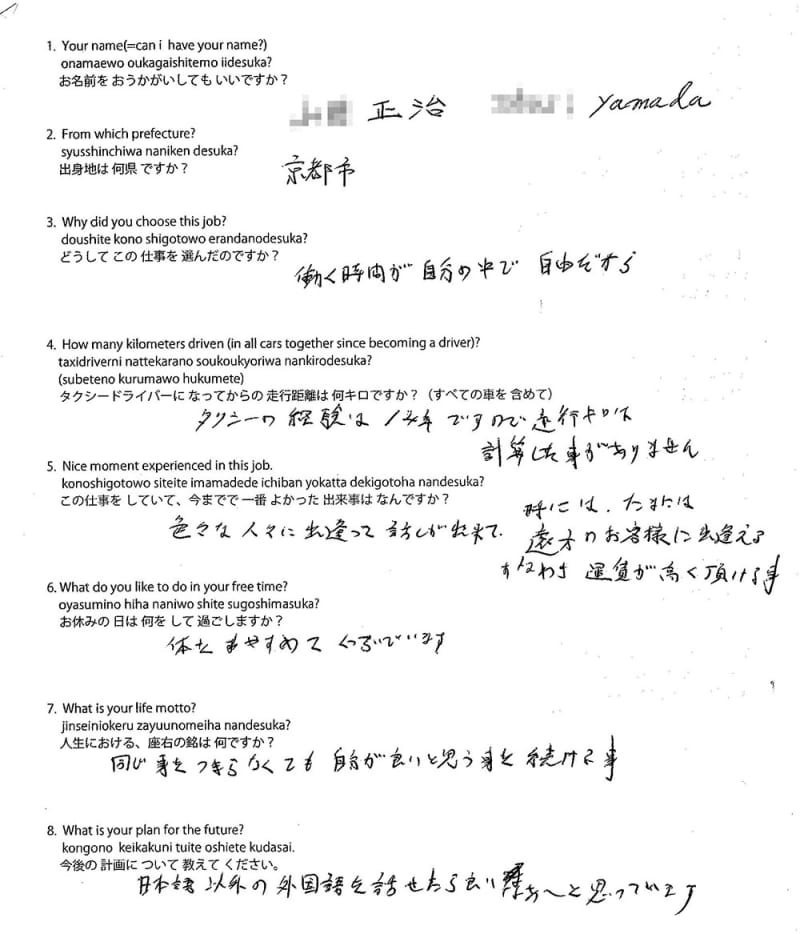 1. Your name(=can i have your name?)
onamaewo oukagaishitemo iidesuka?
お名前を おうかがいしても いいですか？
正治 yamada
2. From which prefecture?
syusshinchiwa naniken desuka?
出身地は 何県 ですか？
京都市
3. Why did you choose this job?
doushite kono shigotowo erandanodesuka?
どうして この 仕事を 選んだのですか？
働く時間が 自分の中で 自由だから
4. How many kilometers driven (in all cars together since becoming a driver)?
taxidriverni nattekarano soukoukyoriwa nankirodesuka?
(subeteno kurumawo hukumete)
タクシードライバーに なってからの 走行距離は 何キロですか？（すべての車を 含めて）
タクシーの 経験は ですので 走行キロは
計算した事がありません
5. Nice moment experienced in this job.
konoshigotowo siteite imamadede ichiban yokatta dekigotoha nandesuka?
この仕事を していて、今までで 一番 よかった 出来事は なんですか？
色々な 人々に 出逢って 話しが出来て.
時には. たまには
遠方のお客様に出逢える
すなわち 運賃が高く頂ける事
6. What do you like to do in your free time?
oyasumino hiha naniwo shite sugoshimasuka?
お休みの 日は 何を して 過ごしますか？
体を やすめて くつろいでいます
7. What is your life motto?
jinseiniokeru zayuunomeiha nandesuka?
人生における、座右の銘は 何ですか？
同じ 事を つまらなくても 自分が良いと思う事を 続ける事
8. What is your plan for the future?
kongono keikakuni tuite oshiete kudasai.
今後の 計画に ついて 教えて ください。
日本語以外の 外国語を話せたら良い なあ〜と思っています